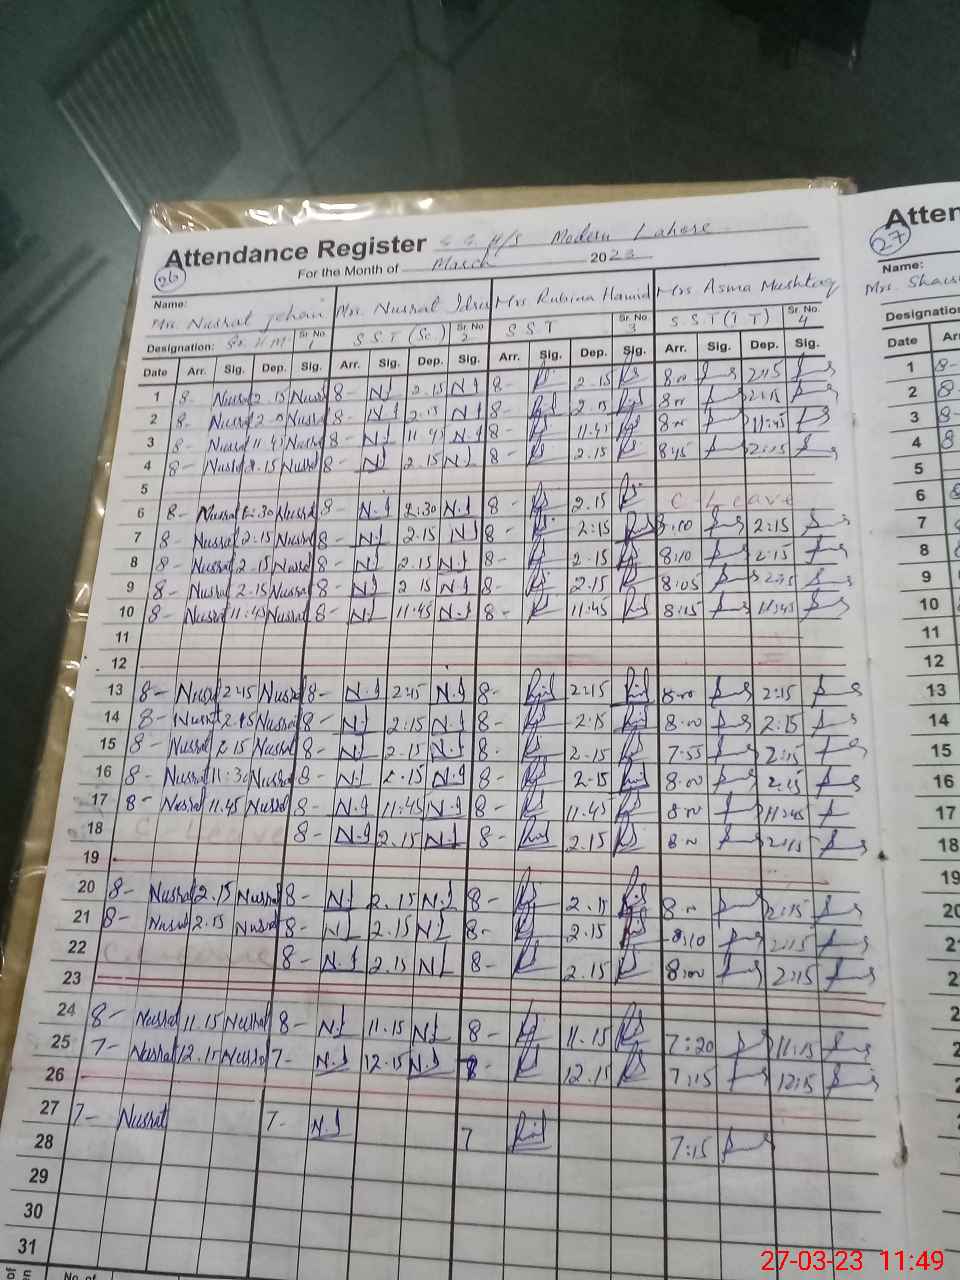 Attendance Register G.G. H/S Modern Lahore
For the Month of March 2023
26
Name: Mrs. Nusrat Jehan Mrs. Nusrat Idris Mrs Rubina Hamid Mrs Asma Mushtaq
Designation: Sr. H.M Sr. No. 1 S.S.T (Sc.) Sr. No. 2 S.S.T Sr. No. 3 S.S.T (I.T) Sr. No. 4
Date Arr. Sig. Dep. Sig. Arr. Sig. Dep. Sig. Arr. Sig. Dep. Sig. Arr. Sig. Dep. Sig.
1 8- Nusrat 2.15 Nusrat 8- N.I 2.15 N.I 8- 2.15 8:00 2:15
2 8- Nusrat Nusrat 8- N.I 2.15 N.I 8- 2.15 8:00 2:15
3 8- Nusrat 11.45 Nusrat 8- N.I 11.45 N.I 8- 11.45 8:00 11:45
4 8- Nusrat 2.15 Nusrat 8- N.I 2.15 N.I 8- 2.15 8:15 2:15
5
6 8- Nusrat 2:30 Nusrat 8- N.I 2:30 N.I 8- 2.15 C. Leave
7 8- Nusrat 2:15 Nusrat 8- N.I 2.15 N.I 8- 2:15 8:00 2:15
8 8- Nusrat 2.15 Nusrat 8- N.I 2.15 N.I 8- 2.15 8:10 2:15
9 8- Nusrat 2.15 Nusrat 8- N.I 2.15 N.I 8- 2.15 8:05 2:15
10 8- Nusrat 11:45 Nusrat 8- N.I 11:45 N.I 8- 11:45 8:15 11:45
11
12
13 8- Nusrat 2:15 Nusrat 8- N.I 2:15 N.I 8- 2:15 8:00 2:15
14 8- Nusrat 2.15 Nusrat 8- N.I 2:15 N.I 8- 2:15 8:00 2:15
15 8- Nusrat 2.15 Nusrat 8- N.I 2.15 N.I 8- 2.15 7:55 2:15
16 8- Nusrat 11:30 Nusrat 8- N.I 2.15 N.I 8- 2.15 8:00 2:15
17 8- Nusrat 11.45 Nusrat 8- N.I 11:45 N.I 8- 11.45 8:00 11:45
18 C. Leave 8- N.I 2.15 N.I 8- 2.15 8:00 2:15
19
20 8- Nusrat 2.15 Nusrat 8- N.I 2.15 N.I 8- 2.15 8:00 2:15
21 8- Nusrat 2.15 Nusrat 8- N.I 2.15 N.I 8- 2.15 8:10 2:15
22 C. Leave 8- N.I 2.15 N.I 8- 2.15 8:00 2:15
23
24 8- Nusrat 11.15 Nusrat 8- N.I 11.15 N.I 8- 11.15 7:20 11:15
25 7- Nusrat 12.15 Nusrat 7- N.I 12.15 N.I 8- 12.15 7:15 12:15
26
27 7- Nusrat 7- N.I 7 7:15
28
29
30
31
No. of
Atten
27
Name:
Mrs. Shais
Designation
Date Arr
1 8-
2 8-
3 8-
4 8
5
6
7
8
9
10
11
12
13
14
15
16
17
18
19
20
27-03-23 11:49